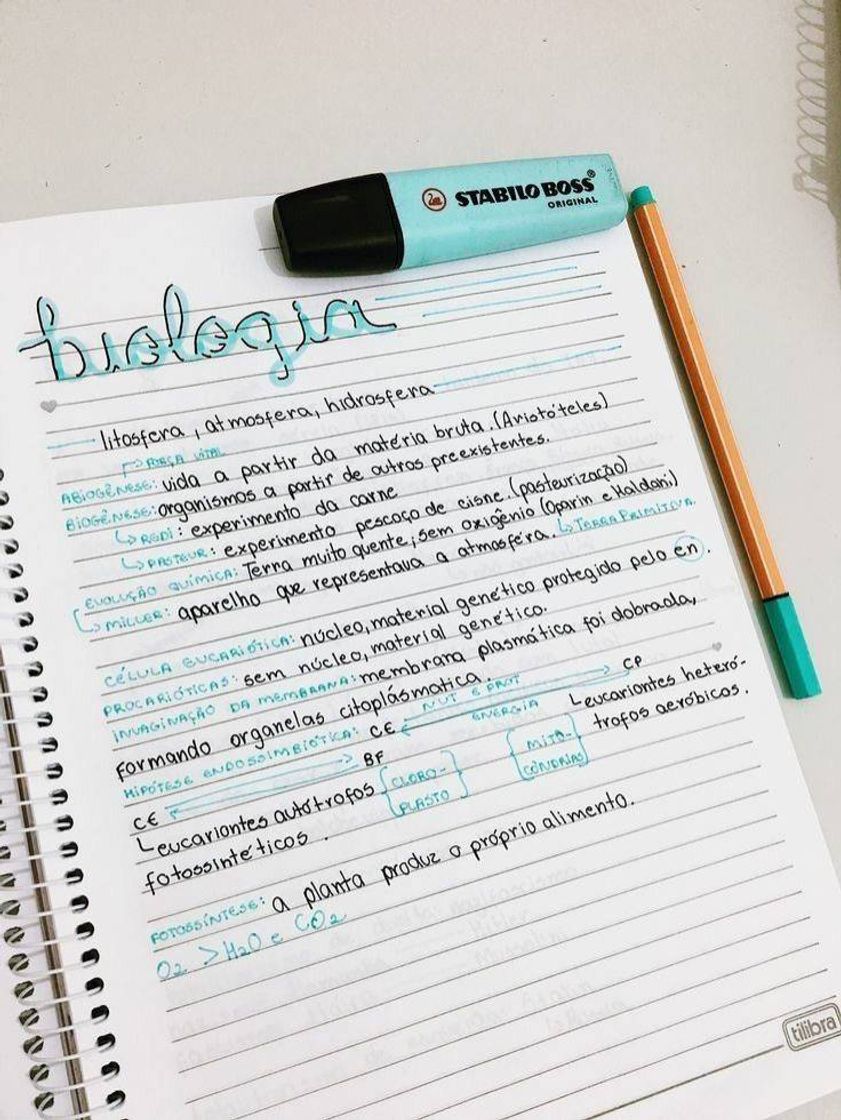 STABILO BOSS®
ORIGINAL
biologia
litosfera, atmosfera, hidrosfera
FORÇA VITAL
ABIOGÊNESE: vida a partir da matéria bruta. (Aristóteles)
BIOGÊNESE: organismos a partir de outros preexistentes.
REDI: experimento da carne
PASTEUR: experimento pescoço de cisne. (pasteurização)
EVOLUÇÃO QUÍMICA: Terra muito quente, sem oxigênio (Oparin e Haldani)
MILLER: aparelho que representava a atmosfera. TERRA PRIMITIVA.
CÉLULA EUCARIÓTICA: núcleo, material genético protegido pelo en.
PROCARIÓTICAS: sem núcleo, material genético.
INVAGINAÇÃO DA MEMBRANA: membrana plasmática foi dobrada,
formando organelas citoplásmatica.
HIPÓTESE ENDOSSIMBIÓTICA: CE NUT E PROT ENERGIA CP
eucariontes heteró-
trofos aeróbicos.
MITO-
CÔNDRIAS
CE BF
eucariontes autótrofos
fotossintéticos.
CLORO-
PLASTO
FOTOSSÍNTESE: a planta produz o próprio alimento.
O₂ > H₂O e CO₂
tilibra